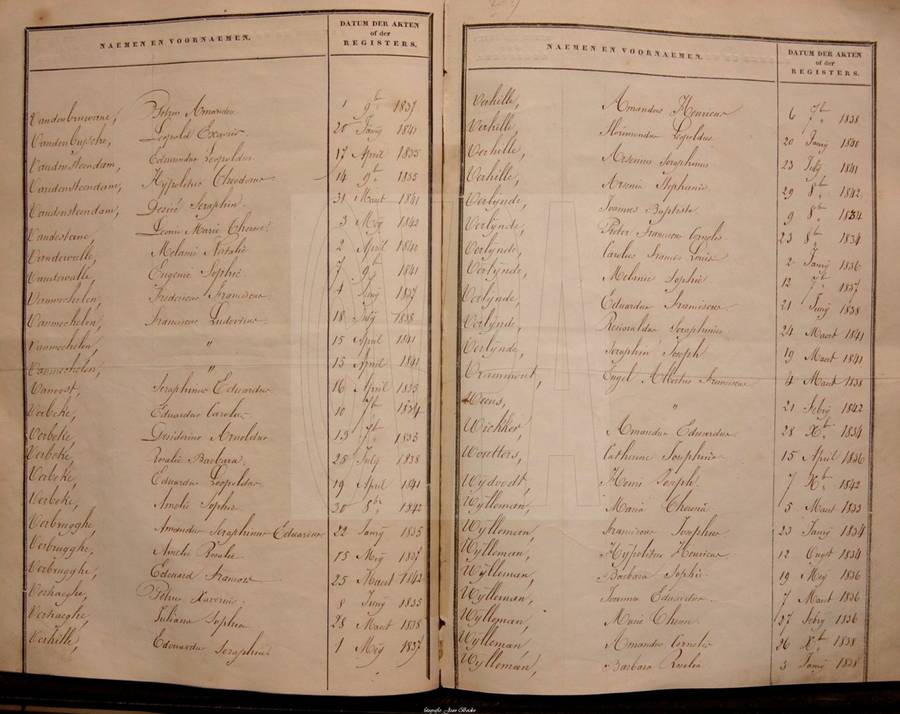 NAEMEN EN VOORNAEMEN. DATUM DER AKTEN
of der
REGISTERS.
Vandenbruwaene, Petrus Amandus 1 9br 1837
Vandenbussche, Leopold Xavier 20 Janij 1841
Vandensteendam, Edmundus Leopoldus 17 April 1835
Vandensteendam, Hypolitus Theodorus 14 9br 1835
Vandensteendam, Desiré Seraphin 31 Maart 1841
Vandesteene Leonie Marie Therese 3 Meij 1842
Vandewalle, Melanie Nathalie 2 April 1841
Vandewalle, Eugenie Sophie 7 9br 1841
Vanmechelen, Fredericus Franciscus 4 1837
Vanmechelen, Franciscus Ludovicus 18 July 1838
Vanmechelen, " 15 April 1841
Vanmechelen, " 15 April 1841
Vanoost, Seraphinus Eduardus 16 April 1833
Verbeke, Eduardus Carolus 10 7br 1834
Verbeke, Desiderius Arnoldus 13 7br 1833
Verbeke, Rosalie Barbara 28 July 1838
Verbeke, Eduardus Leopoldus 19 April 1841
Verbeke, Amelie Sophie 30 8br 1842
Verbrugghe, Amandus Seraphinus Eduardus 22 Janij 1835
Verbrugghe, Amelie Rosalie 15 Meij 1837
Verbrugghe, Edouard Francois 25 Maart 1842
Verhaeghe, Petrus Xaverius 8 Junij 1835
Verhaeghe, Juliana Sophia 28 Maart 1838
Verhille, Edouardus Seraphinus 1 Meij 1837
NAEMEN EN VOORNAEMEN. DATUM DER AKTEN
of der
REGISTERS.
Verhille, Amandus Henricus 6 7br 1838
Verhille, Leopoldus 20 Janij 1838
Verhille, Arsenius Seraphinus 23 July 1841
Verhille, Arsenia Stephanie 29 8br 1842
Verlynde, Joannes Baptiste 9 8br 1834
Verlynde, Pieter Francisco Cornelis 23 8br 1834
Verlynde, Carolus Francis Louis 2 Janij 1836
Verlynde, Melanie Sophie 12 7br 1837
Verlynde, Eduardus Franciscus 21 Junij 1838
Verlynde, Seraphinus 24 Maert 1841
Verlynde, Seraphin Joseph 19 Maert 1841
Vrammout, Engel Albertus Franciscus 4 Maart 1838
Weens, " 21 Febrij 1842
Wickher, Amandus Eduardus 28 Xbr 1834
Woutters, Catherine Josephine 15 April 1836
Wydoodt, Henri Joseph 7 Xbr 1842
Wylleman, Maria Theresia 5 Maart 1833
Wylleman, Franciscus Josephus 23 Janij 1834
Wylleman, Hypolitus Henricus 12 Ougst 1834
Wylleman, Barbara Sophie 19 Meij 1836
Wylleman, Joanna Eduardus 7 Maart 1836
Wylleman, Marie Therese 27 Febrij 1836
Wylleman, Amandus Cornelis 26 Xbr 1838
Wylleman, Barbara Rosalia 3 Janij 1838